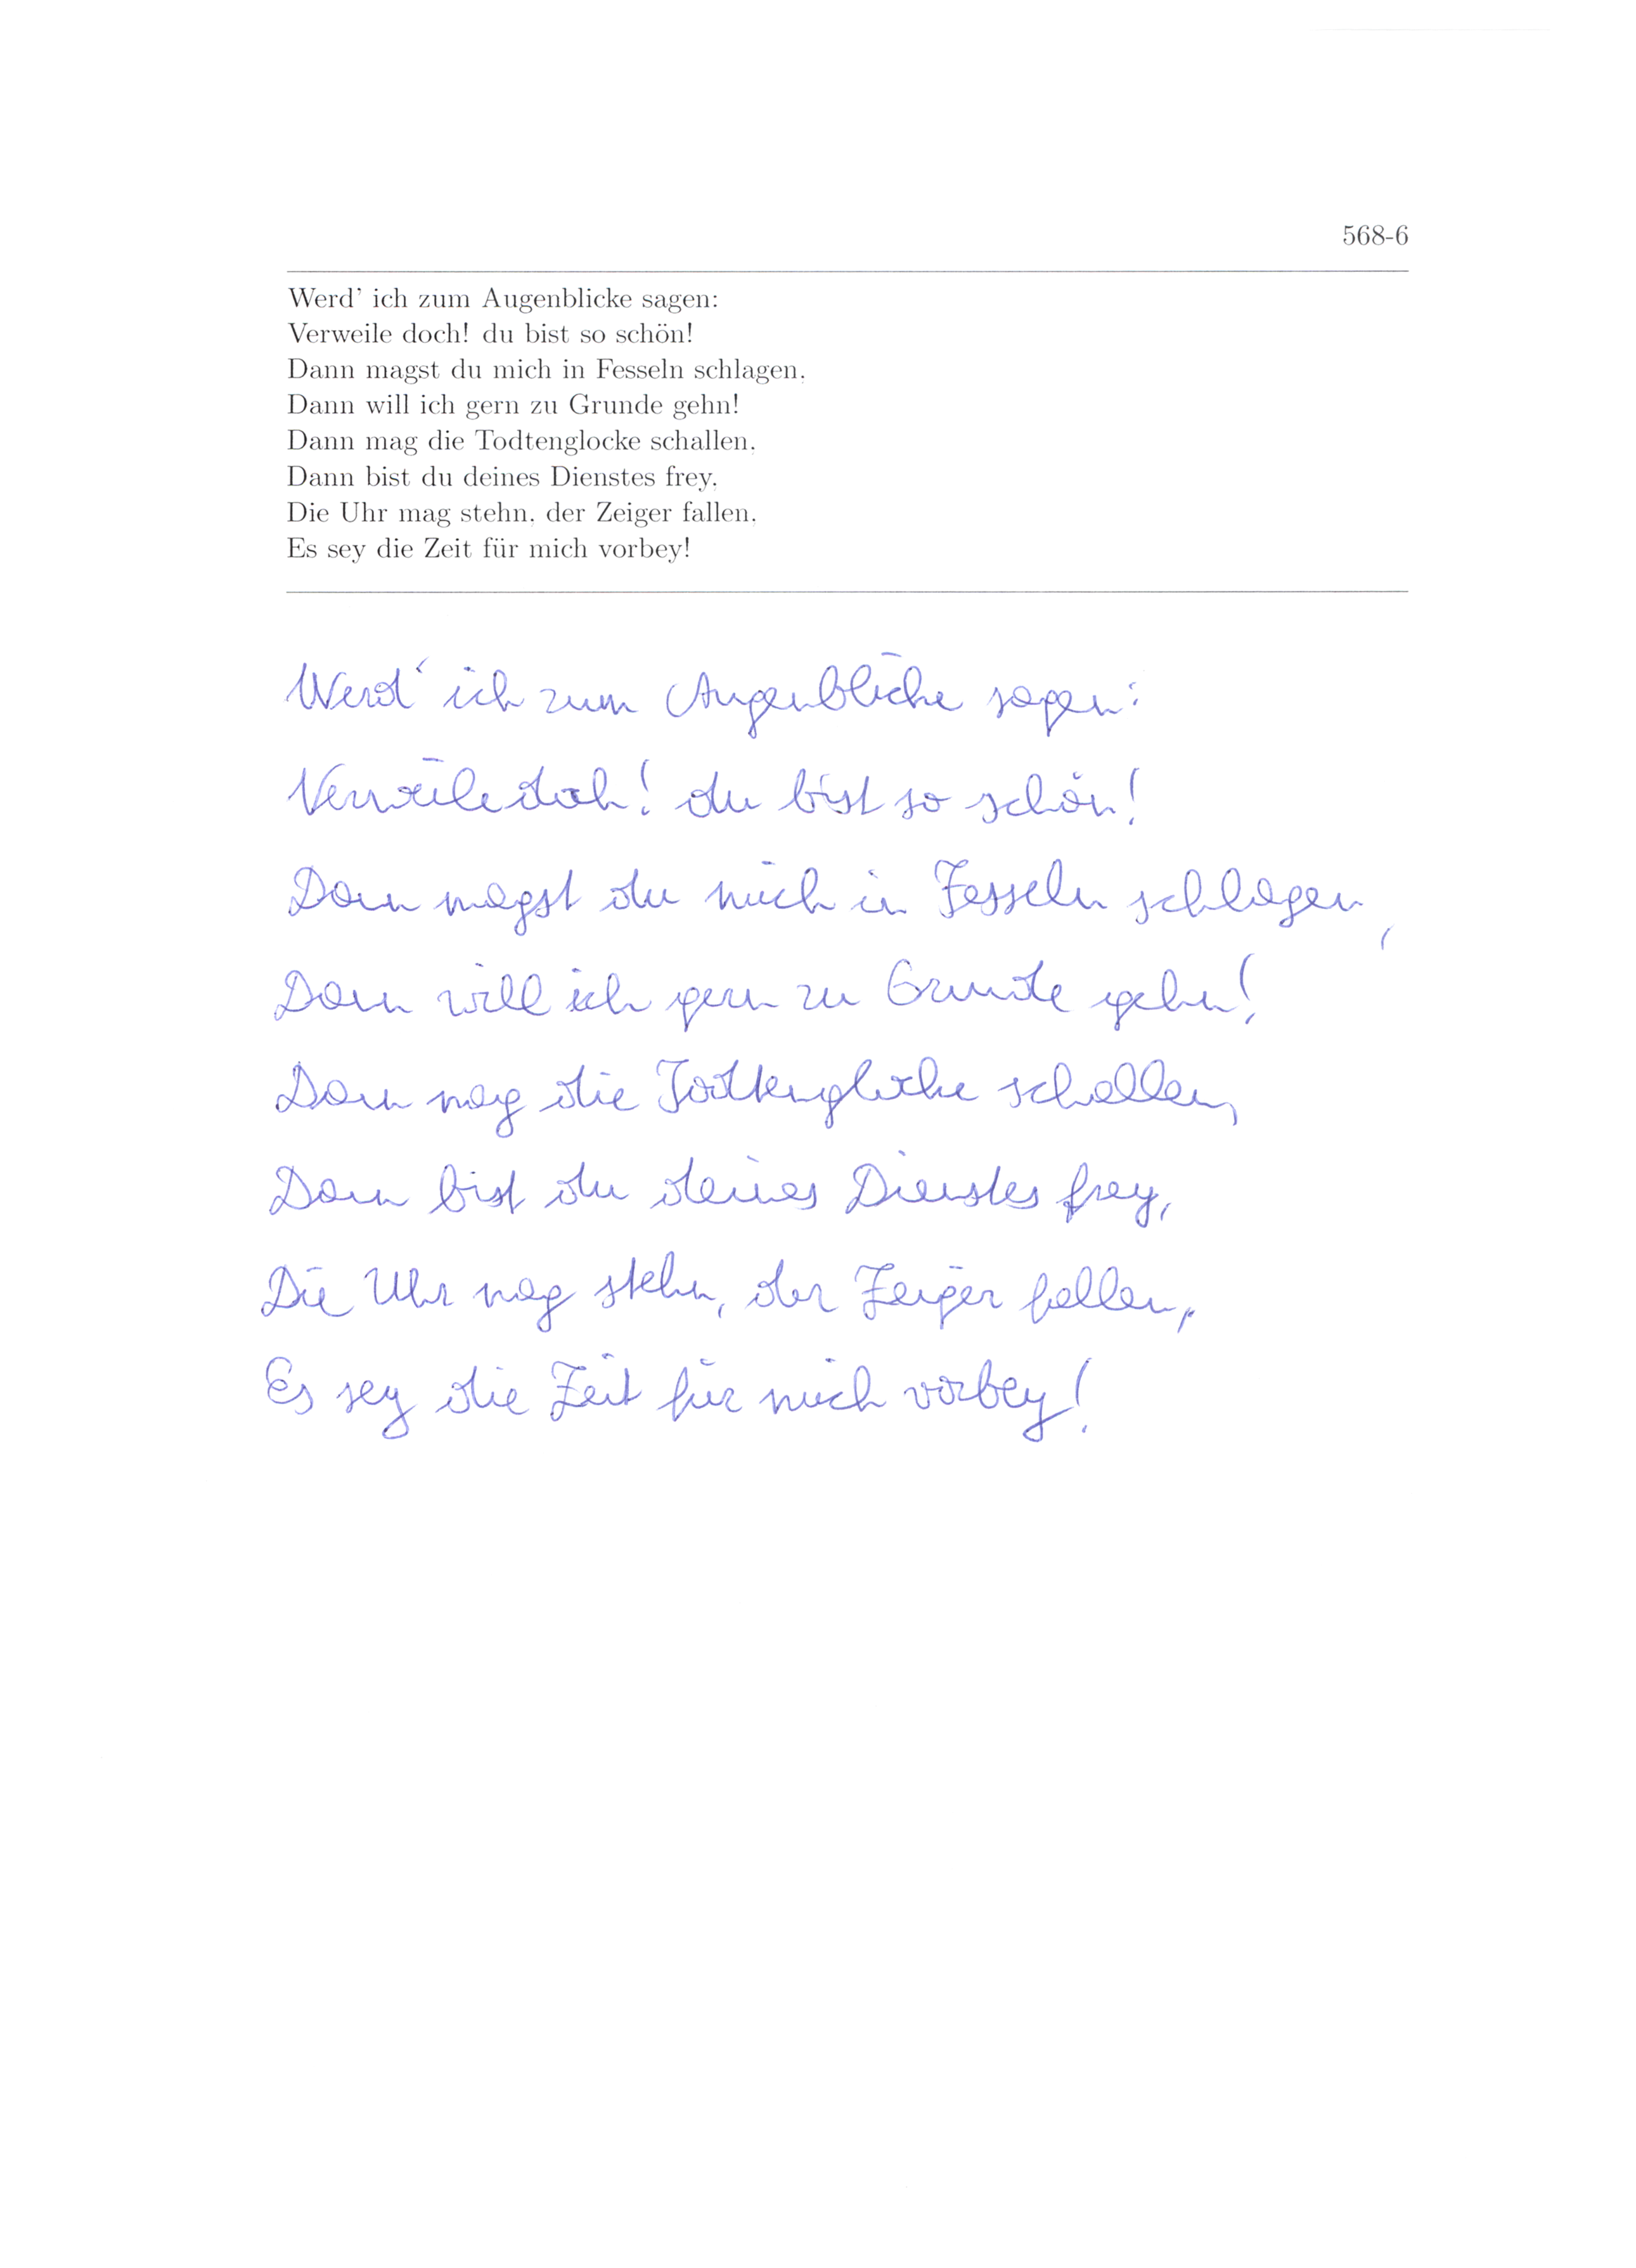 568-6
Werd' ich zum Augenblicke sagen:
Verweile doch! du bist so schön!
Dann magst du mich in Fesseln schlagen,
Dann will ich gern zu Grunde gehn!
Dann mag die Todtenglocke schallen,
Dann bist du deines Dienstes frey,
Die Uhr mag stehn, der Zeiger fallen,
Es sey die Zeit für mich vorbey!
Werd' ich zum Augenblicke sagen:
Verweile doch! du bist so schön!
Dann magst du mich in Fesseln schlagen,
Dann will ich gern zu Grunde gehn!
Dann mag die Todtenglocke schallen,
Dann bist du deines Dienstes frey,
Die Uhr mag stehn, der Zeiger fallen,
Es sey die Zeit für mich vorbey!